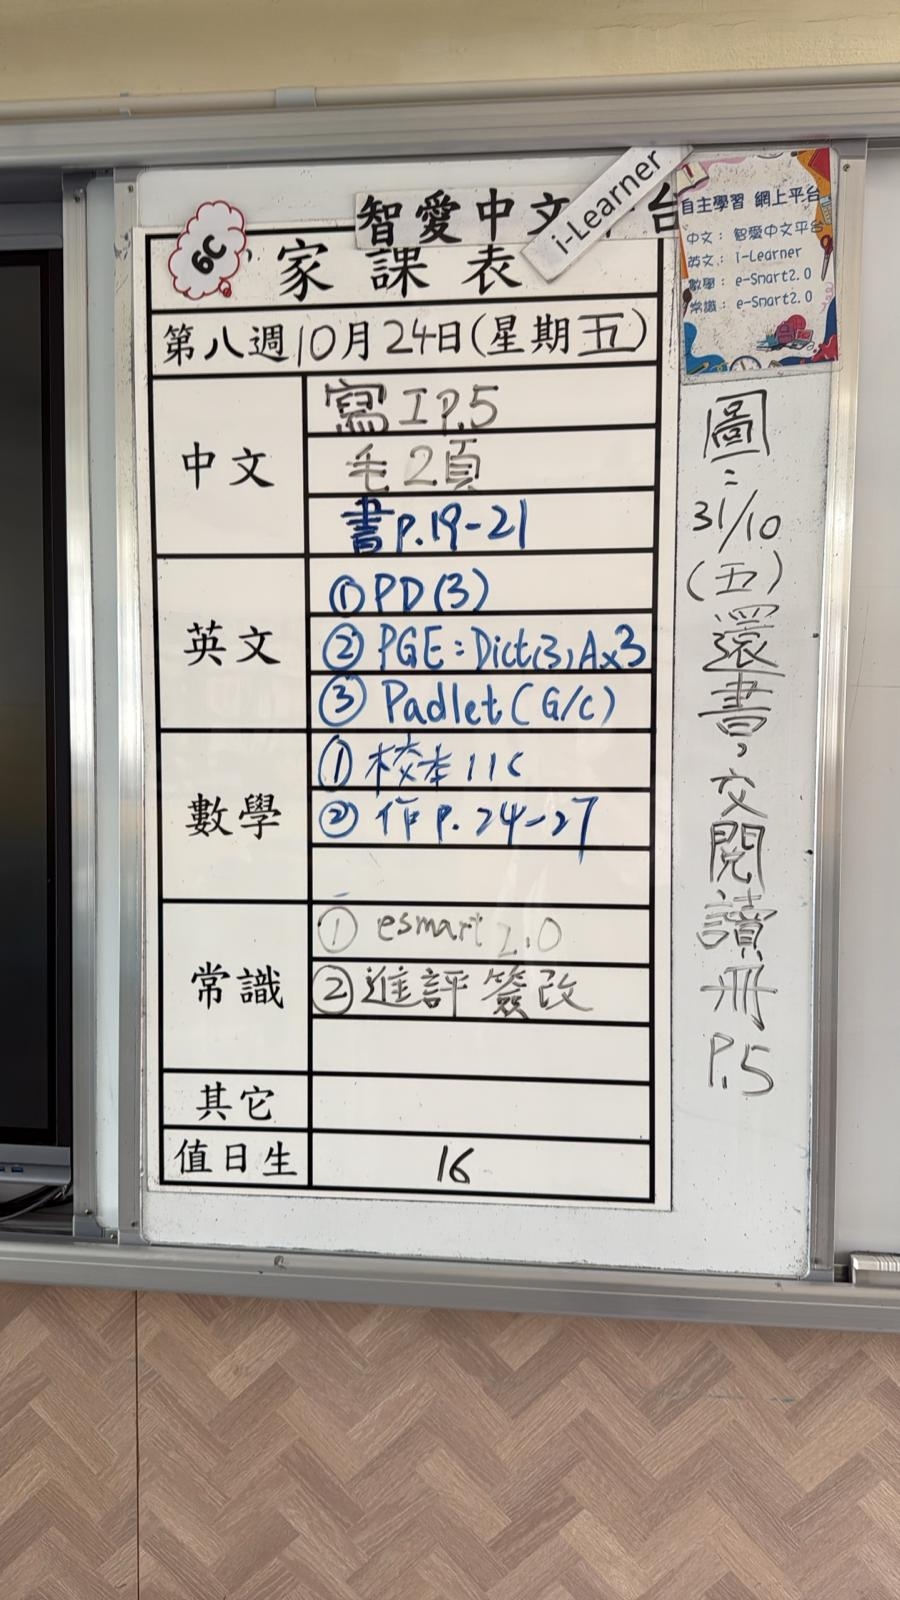 智愛中文平台
i-Learner
6C
家課表
第八週10月24日(星期五)
中文
寫工P.5
毛2頁
書P.19-21
英文
①PD(3)
②PGE:Dict(3)Ax3
③Padlet(G/C)
數學
①校本11C
②作P.24-27
常識
①esmart2.0
②進評簽改
其它
值日生
16
自主學習 網上平台
中文：智愛中文平台
英文：i-Learner
數學：e-Smart2.0
常識：e-Smart2.0
圖：31/10(五)還書，交閱讀冊P.5